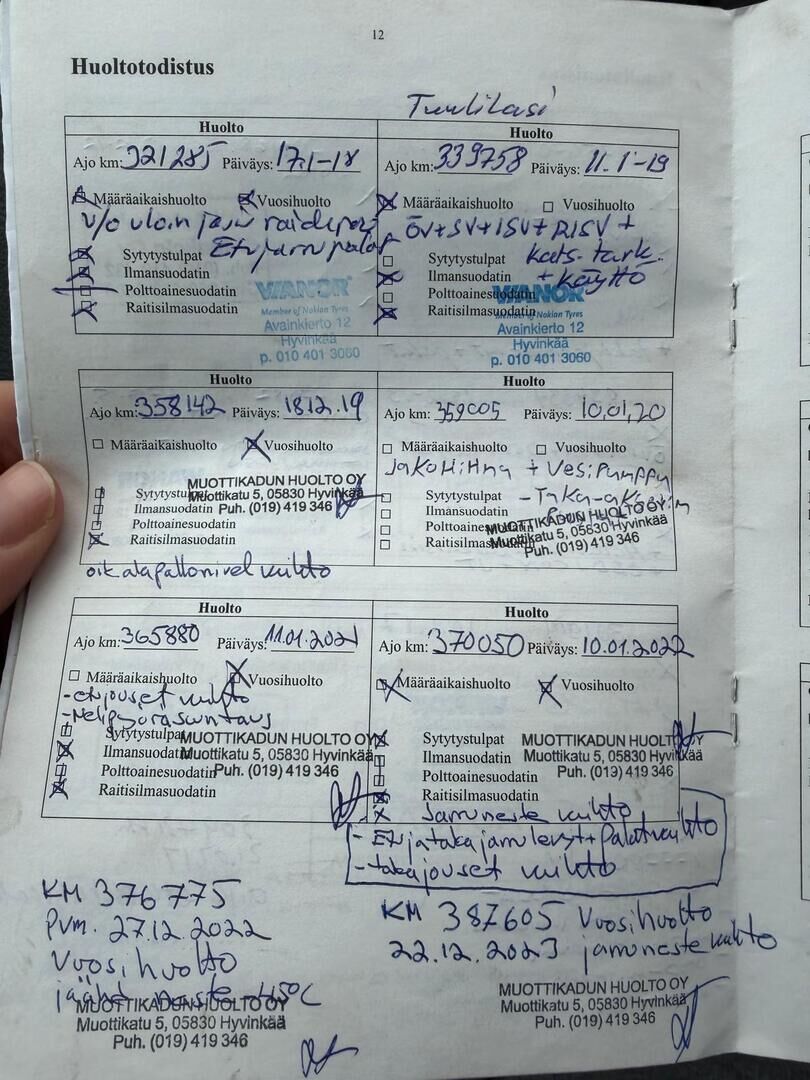 12
Huoltotodistus
Tuulilasi
Huolto
Ajo km: 321285 Päiväys: 17.1-18
Määräaikaishuolto Vuosihuolto
v/o uloin
Etujarrupalat
Sytytystulpat
Ilmansuodatin
Polttoainesuodatin
Raitisilmasuodatin
VIANOR
Member of Nokian Tyres
Avainkierto 12
Hyvinkää
p. 010 401 3060
Huolto
Ajo km: 339758 Päiväys: 11.1-19
Määräaikaishuolto Vuosihuolto
ÖV+SV+ISV+RISV+
Sytytystulpat kats-tark.
Ilmansuodatin + Käyttö
Polttoainesuodatin
Raitisilmasuodatin
VIANOR
Member of Nokian Tyres
Avainkierto 12
Hyvinkää
p. 010 401 3060
Huolto
Ajo km: 358142 Päiväys: 18.12.19
Määräaikaishuolto Vuosihuolto
Sytytystulpat
Ilmansuodatin
Polttoainesuodatin
Raitisilmasuodatin
MUOTTIKADUN HUOLTO OY
Muottikatu 5, 05830 Hyvinkää
Puh. (019) 419 346
oik alapallonivel vaihto
Huolto
Ajo km: 359005 Päiväys: 10,01,20
Määräaikaishuolto Vuosihuolto
Jakohihna + Vesipumppu
Sytytystulpat
Ilmansuodatin
Polttoainesuodatin
Raitisilmasuodatin
MUOTTIKADUN HUOLTO OY
Muottikatu 5, 05830 Hyvinkää
Puh. (019) 419 346
Huolto
Ajo km: 365880 Päiväys: 11.01.2021
Määräaikaishuolto Vuosihuolto
- etujouset vaihto
- Nelipyöräsuuntaus
Sytytystulpat
Ilmansuodatin
Polttoainesuodatin
Raitisilmasuodatin
MUOTTIKADUN HUOLTO OY
Muottikatu 5, 05830 Hyvinkää
Puh. (019) 419 346
Huolto
Ajo km: 370050 Päiväys: 10.01.2022
Määräaikaishuolto Vuosihuolto
Sytytystulpat
Ilmansuodatin
Polttoainesuodatin
Raitisilmasuodatin
MUOTTIKADUN HUOLTO OY
Muottikatu 5, 05830 Hyvinkää
Puh. (019) 419 346
x Jarruneste vaihto
- Etu ja taka jarrulevyt + palat vaihto
- takajouset vaihto
KM 376775
Pvm. 27.12.2022
Vuosihuolto
jäähd neste -45°C
MUOTTIKADUN HUOLTO OY
Muottikatu 5, 05830 Hyvinkää
Puh. (019) 419 346
KM 387605 Vuosihuolto
22.12.2023 jarruneste vaihto
MUOTTIKADUN HUOLTO OY
Muottikatu 5, 05830 Hyvinkää
Puh. (019) 419 346